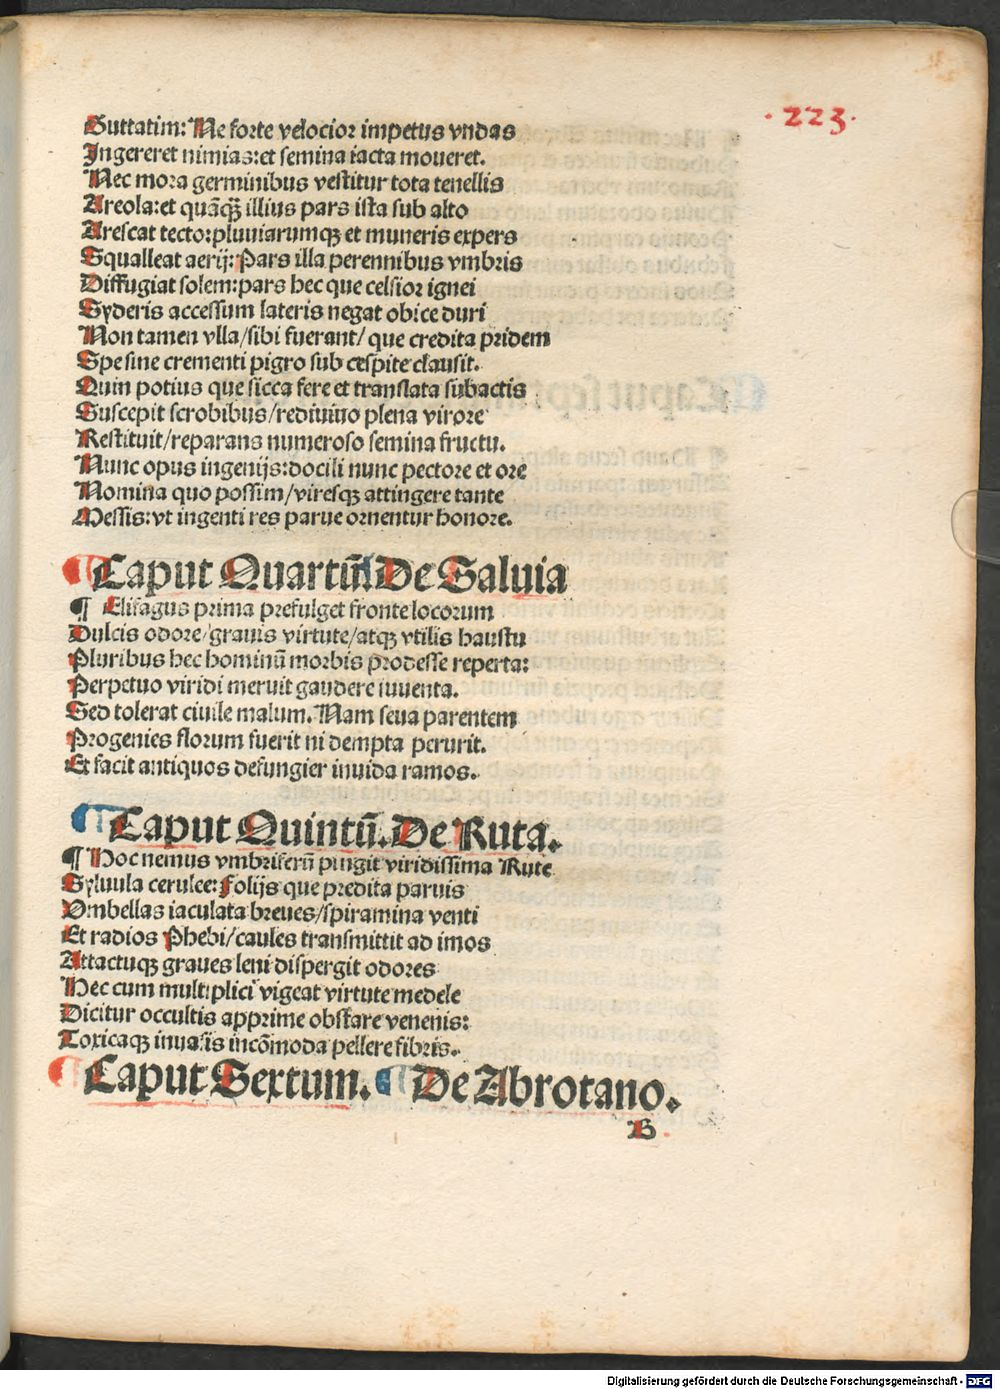 ·223·
Guttatim: Ne forte velocior impetus vndas
Ingereret nimias: et semina iacta moueret.
Nec mora germinibus vestitur tota tenellis
Areola: et quāqꝫ illius pars ista sub alto
Arescat tecto: pluuiarumqꝫ et muneris expers
Squalleat aerij: Pars illa perennibus vmbris
Diffugiat solem: pars hec que celsior ignei
Syderis accessum lateris negat obice duri
Non tamen vlla/sibi fuerant/ que credita pridem
Spe sine crementi pigro sub cespite clausit.
Quin potius que sicca fere et translata subactis
Suscepit scrobibus/rediuiuo plena virore
Restituit/reparans numeroso semina fructu.
Nunc opus ingenijs: docili nunc pectore et ore
Nomina quo possim/viresqꝫ attingere tante
Messis: vt ingenti res parue ornentur honore.
Caput Quartū. De Saluia
¶ Elifagus prima prefulget fronte locorum
Dulcis odore/grauis virtute/atqꝫ vtilis haustu
Pluribus hec hominū morbis prodesse reperta:
Perpetuo viridi meruit gaudere iuuenta.
Sed tolerat ciuile malum. Nam seua parentem
Progenies florum fuerit ni dempta perurit.
Et facit antiquos defungier inuida ramos.
Caput Quintū. De Ruta.
¶ Hoc nemus vmbriferū pingit viridissima Rute
Syluula cerulee: Folijs que predita paruis
Vmbellas iaculata breues/spiramina venti
Et radios Phebi/caules transmittit ad imos
Attactuqꝫ graues leni dispergit odores
Hec cum multiplici vigeat virtute medele
Dicitur occultis apprime obstare venenis:
Toxicaqꝫ inuasis incōmoda pellere fibris.
Caput Sextum. De Abrotano.
B
Digitalisierung gefördert durch die Deutsche Forschungsgemeinschaft - DFG